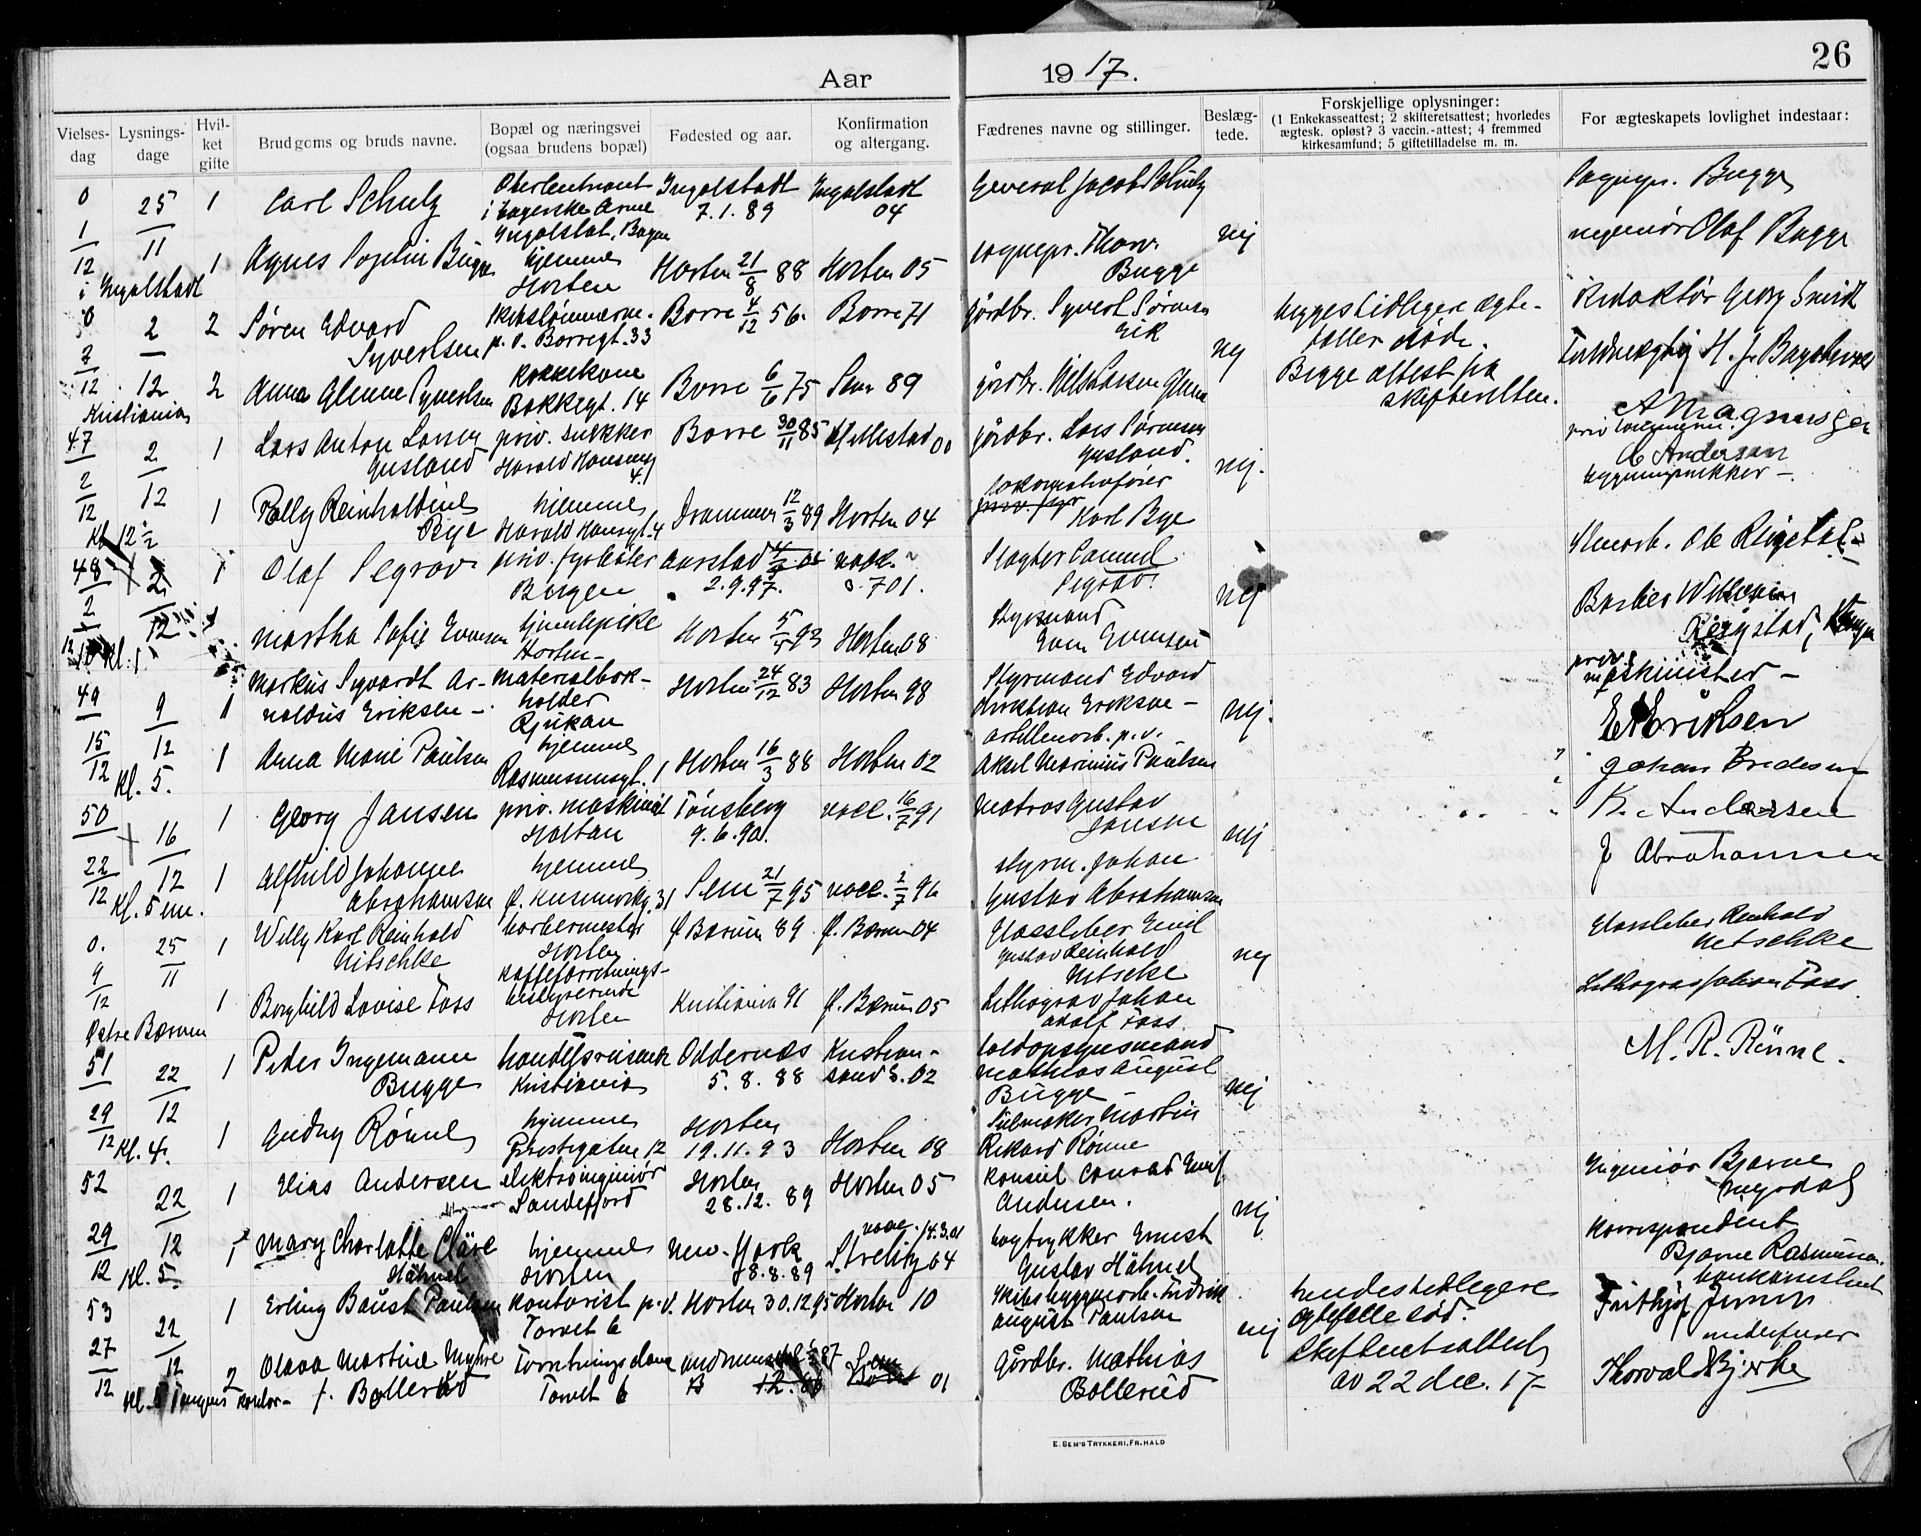 Aar 1917.
26
Vielses-dag
Lysnings-dage
Hvil-ket gifte
Brudgoms og bruds navne.
Bopæl og næringsvei (ogsaa brudens bopæl)
Fødested og aar.
Konfirmation og altergang.
Fædrenes navne og stillinger.
Beslæg-tede.
Forskjellige oplysninger: (1 Enkekasseattest; 2 skifteretsattest; hvorledes ægtesk. opløst? 3 vaccin.-attest; 4 fremmed kirkesamfund; 5 giftetilladelse m. m.
For ægteskapets lovlighet indestaar:
0 1/12 i Ingolstadt
25/11
1 Carl Schulz
Oberleutnant i bayerske Arme Ingolstat, Bayern
Ingolstadt 7.1.89
Ingolstadt 04
General Jacob Schulz
nej
Sognepr. Bugge
1 Agnes Bugge
hjemme Horten
Horten 21/8 88
Horten 05
sognepr. Thorv. Bugge
ingeniør Olaf Bugge
0 7/12 Kristiania
2/12
2 Søren Edvard Syvertsen
p.v. Borregt. 33
Borre 4/12 56
Borre 71
gårdbr. Syvert Sørensen Eik
nej
begges tidligere ægtefæller døde.
Redaktør Georg Smidt
2 Anna Glenne Syvertsen
Kokkekone Bakkegt. 14
Borre 6/6 75
Sem 89
gårdbr. Nils Glenne
Begge attest fra skifteretten.
Fuldmægtig H. J.
47 2/12 Kl 12 1/2
2/12
1 Lars Anton Gusland
priv. snekker Harald Haarsgt. 4
Borre 30/11 85
Hillestad 00
gårdbr. Lars Sørensen Gusland.
nej.
A Magnussen
O Andersen bygningssnikker
1 Reinholdine Bye
hjemme
Drammen 12/3 89
Horten 04
Lokomotivfører Karl Bye
48 2/12 Kl. 1
2/12
1 Olaf Segrov
priv. fyrbøter Bergen
2.9.97.
vacc. 701.
Slagter Samuel Segrov.
nej
Ole Reigstad
1 Martha Sofie Evensen
tjenestepike Horten
Horten 5/5 93
Horten 08
Styrmand Even Evensen
Barber Wilhelm Reigstad,
49 15/12 Kl. 5.
9/12
1 Markus Sigvardt Arnoldus Eriksen
materialbokholder Rjukan
Horten 24/12 83
Horten 98
Styrmand Edvard Kristian Eriksen
nej.
priv. maskinister
E Eriksen
1 Anna Marie Paulsen
hjemme Rasmussensgt. 1
Horten 16/3 88
Horten 02
artilleriarb. p.v. Aksel Marinius Paulsen
50 22/12 Kl. 5 em.
16/12
1 Georg Jansen
priv. maskinist Holtan
Tønsberg 9.6.90.
vacc. 16/7 91
Matros Gustav Jansen
nej
K. Andersen
1 Alfhild Johanne Abrahamsen
hjemme
Sem 21/7 95
vacc. 2/7 96
styrm. Johan Gustav Abrahamsen
J Abrahamsen
0. 9/12 Østre Bærum
25/11
1 Willy Karl Reinhold Nitschke
barbermester Horten
Ø Bærum 89
Ø. Bærum 04
Glassliber Emil Gustav Reinhold Nitscke
nej
Glassliber Reinhold Nitschke
1 Borghild Lovise Foss
kaffeforretningsbestyrerinde Horten
Kristiania 91
Ø. Bærum 05
Lithograv Johan Adolf Foss
Lithograv Johan Foss.
51 29/12 Kl. 4.
22/12
1 Peder Ingemann Bugge
handelsreisende Kristiania
Oddernæs 5.8.88
Kristiansand S. 02
toldopsynsmand Mathias August Bugge
nej
M. R. Rönne.
1 Gudny Rönne
hjemme Prestegaten 12
Horten 19.11.93
Horten 08
Seilmaker Martin Rikard Rönne
52 29/12 Kl. 5
22/12
1 Elias Andersen
elektroingeniør Sandefjord
Horten 28.12.89
Horten 05
konsul Conrad Emil Andersen.
nej
Ingeniør Bjarne
1 Mary Charlotte Cläre Hähnel
hjemme Horten
New-York 8.8.89
vacc. 14.3.01 Strelitz 04
bogtrykker Ernst Gustav Hähnel
korrespondent Bjarne Rasmussen
53 27/12
22/12
1 Erling Baust Paulsen
kontorist p.v. Torvet 6
Horten 30.12.95
Horten 10
Skibsbyggerarb. Fredrik August Paulsen
nej
hendes tidligere ægtefælle død.
Frithjof Jensen
2 Olava Martine Myhre f. Bollerud
Forretningsdame Torvet 6
01
Gårdbr. Mathias Bollerud
Skifteretsattest av 22 dec. 17
Thorvald Bjerke
E. SEM'S TRYKKERI, FR.HALD